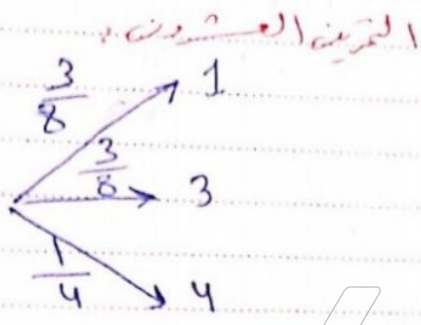 التمرين العشرون:
3/8 1
3/8 3
1/4 4